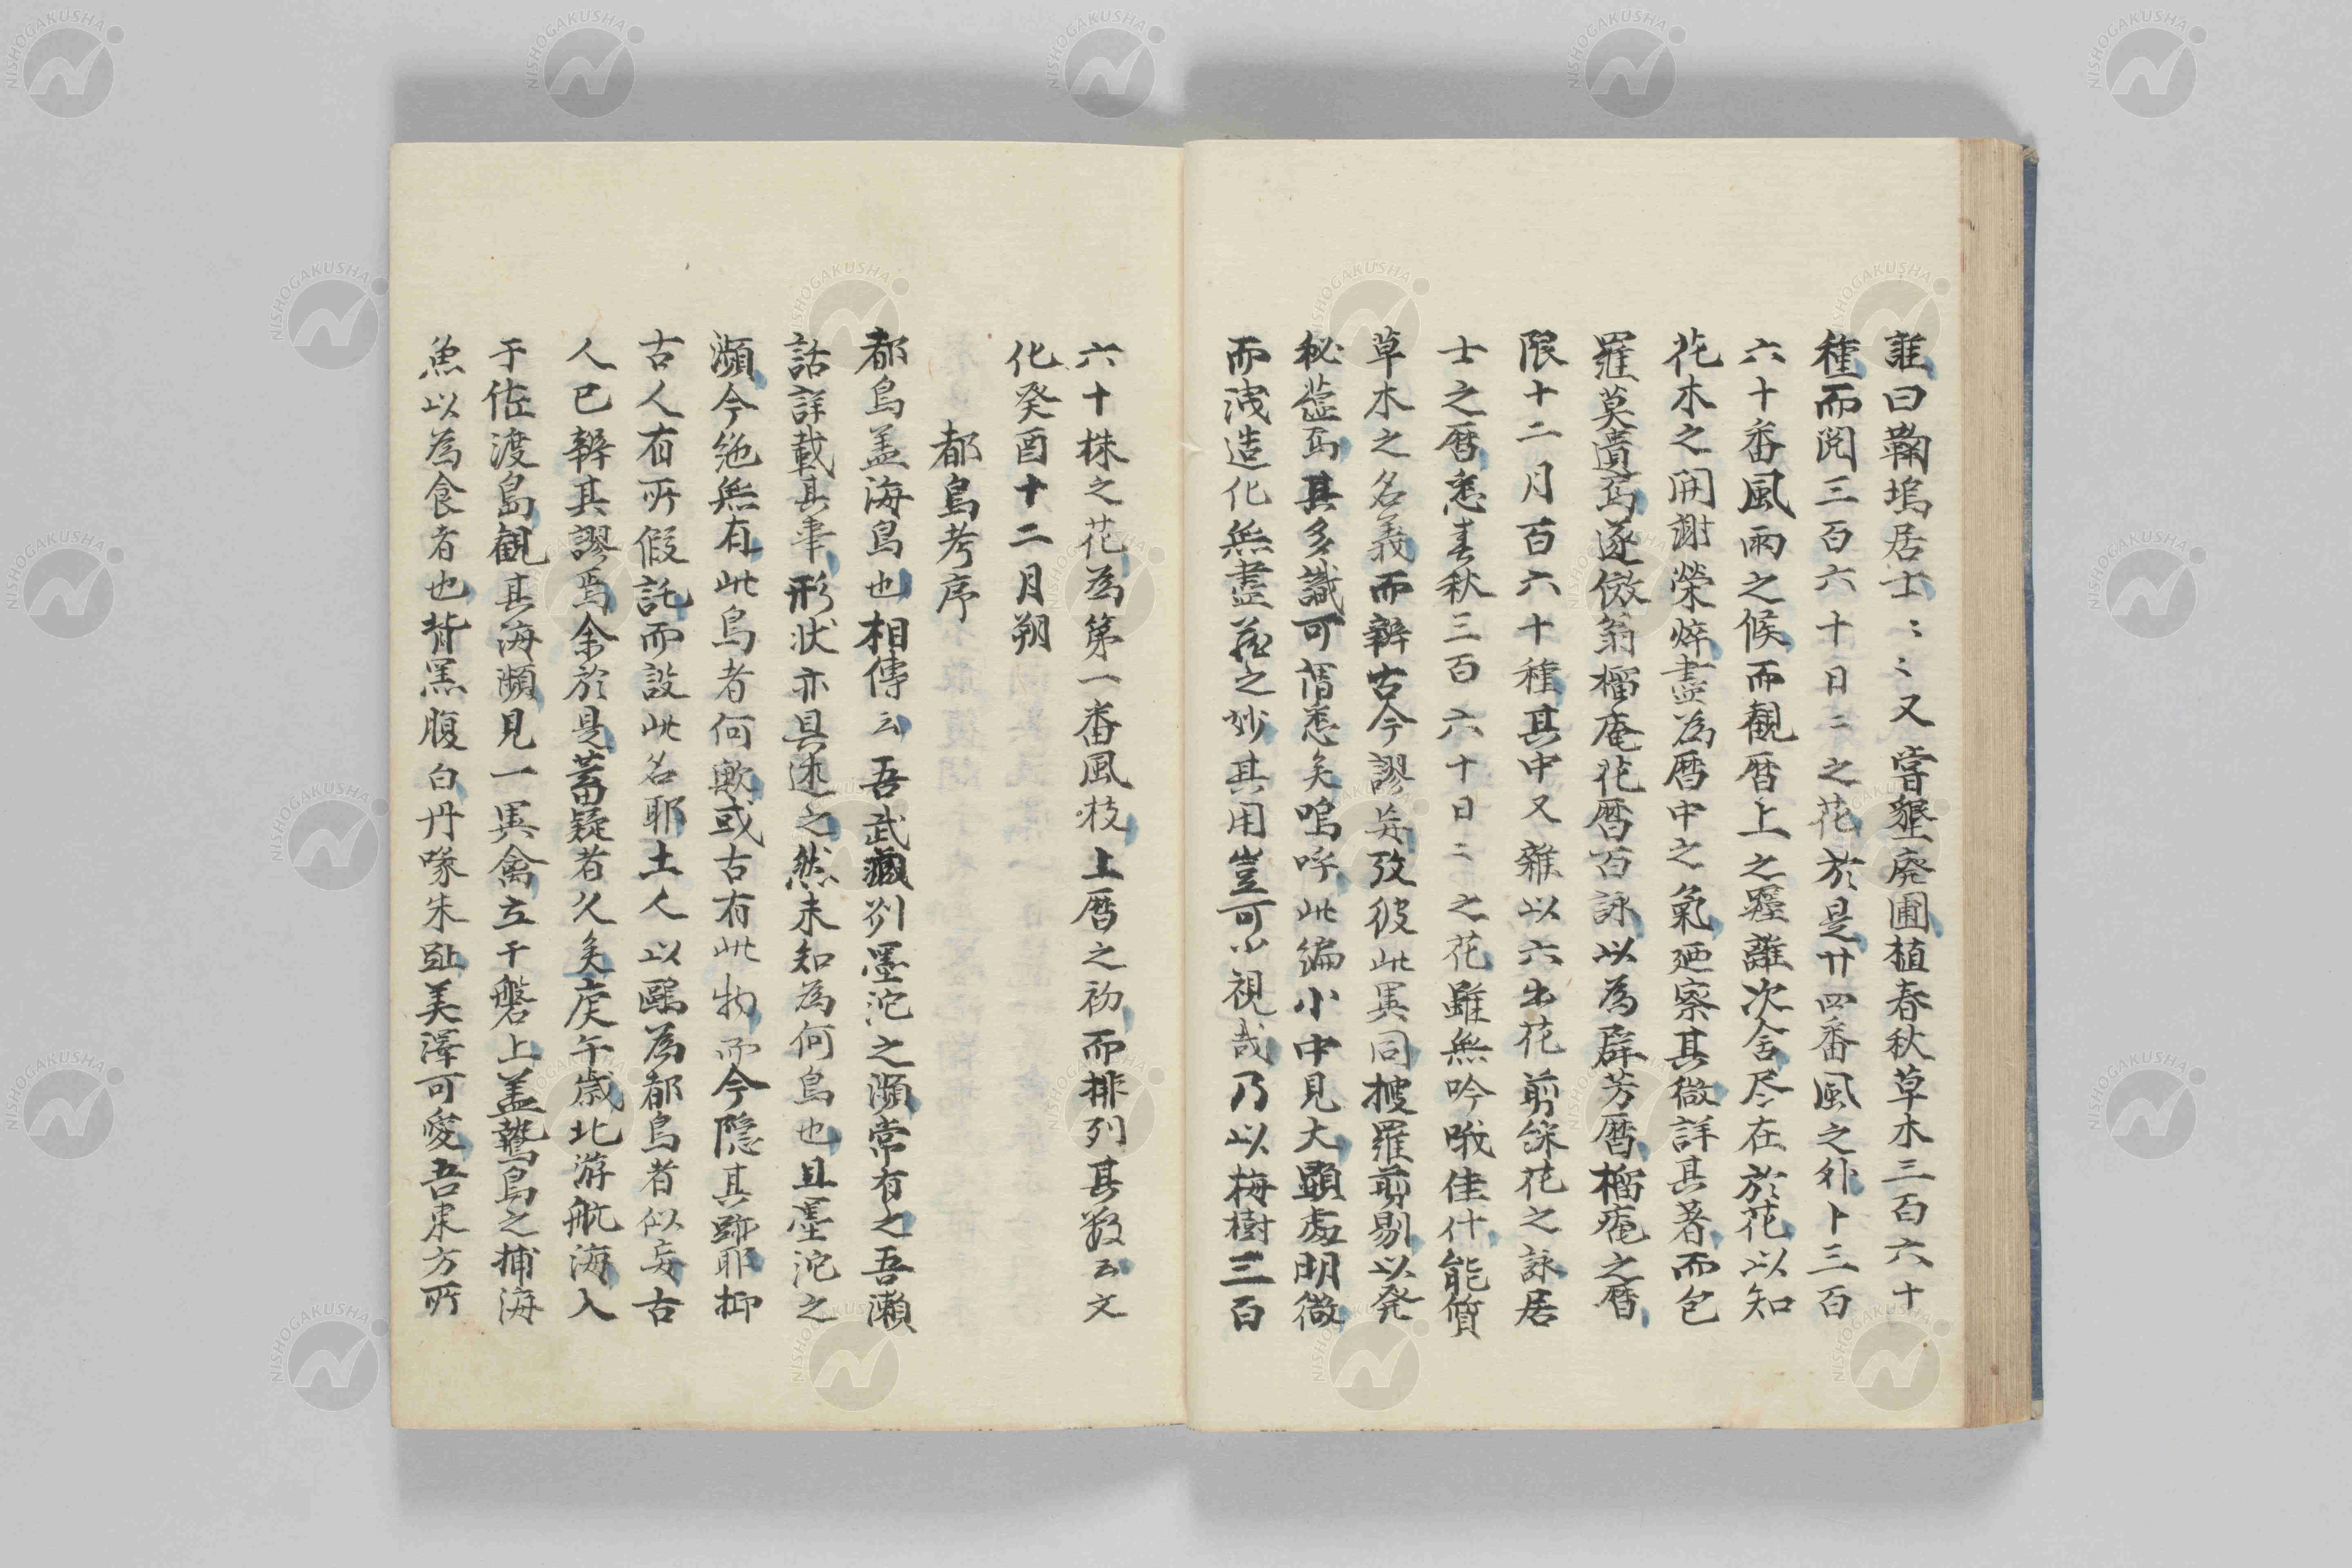 誰曰鞠塢居士〻〻又嘗墾廃圃植春秋草木三百六十
種而閲三百六十日〻之花於是廿四番風之外卜三百
六十番風雨之候而観暦上之躔離次舍尽在於花以知
花木之開謝榮悴盡為暦中之氣廼察其微詳其著而包
羅莫遺焉遂倣翁榴庵花暦百詠以為群芳暦榴庵之暦
限十二月百六十種其中又雜以六出花剪綵花之詠居
士之暦悉春秋三百六十日〻之花雖無吟哦佳什能質
草木之名義而辨古今謬並攷彼此異同摭羅剪剔以発
秘蘊焉其多識可謂悉矣嗚呼此編小中見大顕處明微
而洩造化無盡蔵之妙其用豈可小視哉乃以梅樹三百
六十株之花為第一番風枝上暦之初而排列其数云文
化癸酉十二月朔
都鳥考序
都鳥盖海鳥也相傳云吾武蔵州墨沱之瀕常有之吾瀬
話詳載其事形状亦具述之然未知為何鳥也且墨沱之
瀕今絶無有此鳥者何歟或古有此物而今隠其跡耶抑
古人有所假託而設此名耶土人以鷗為都鳥者似妄古
人已辨其謬焉余於是蓄疑者久矣庚午歳北游航海入
于佐渡島観其海瀕見一異禽立于磐上盖鷙鳥之捕海
魚以為食者也背黒腹白丹喙朱趾美澤可愛吾東方所